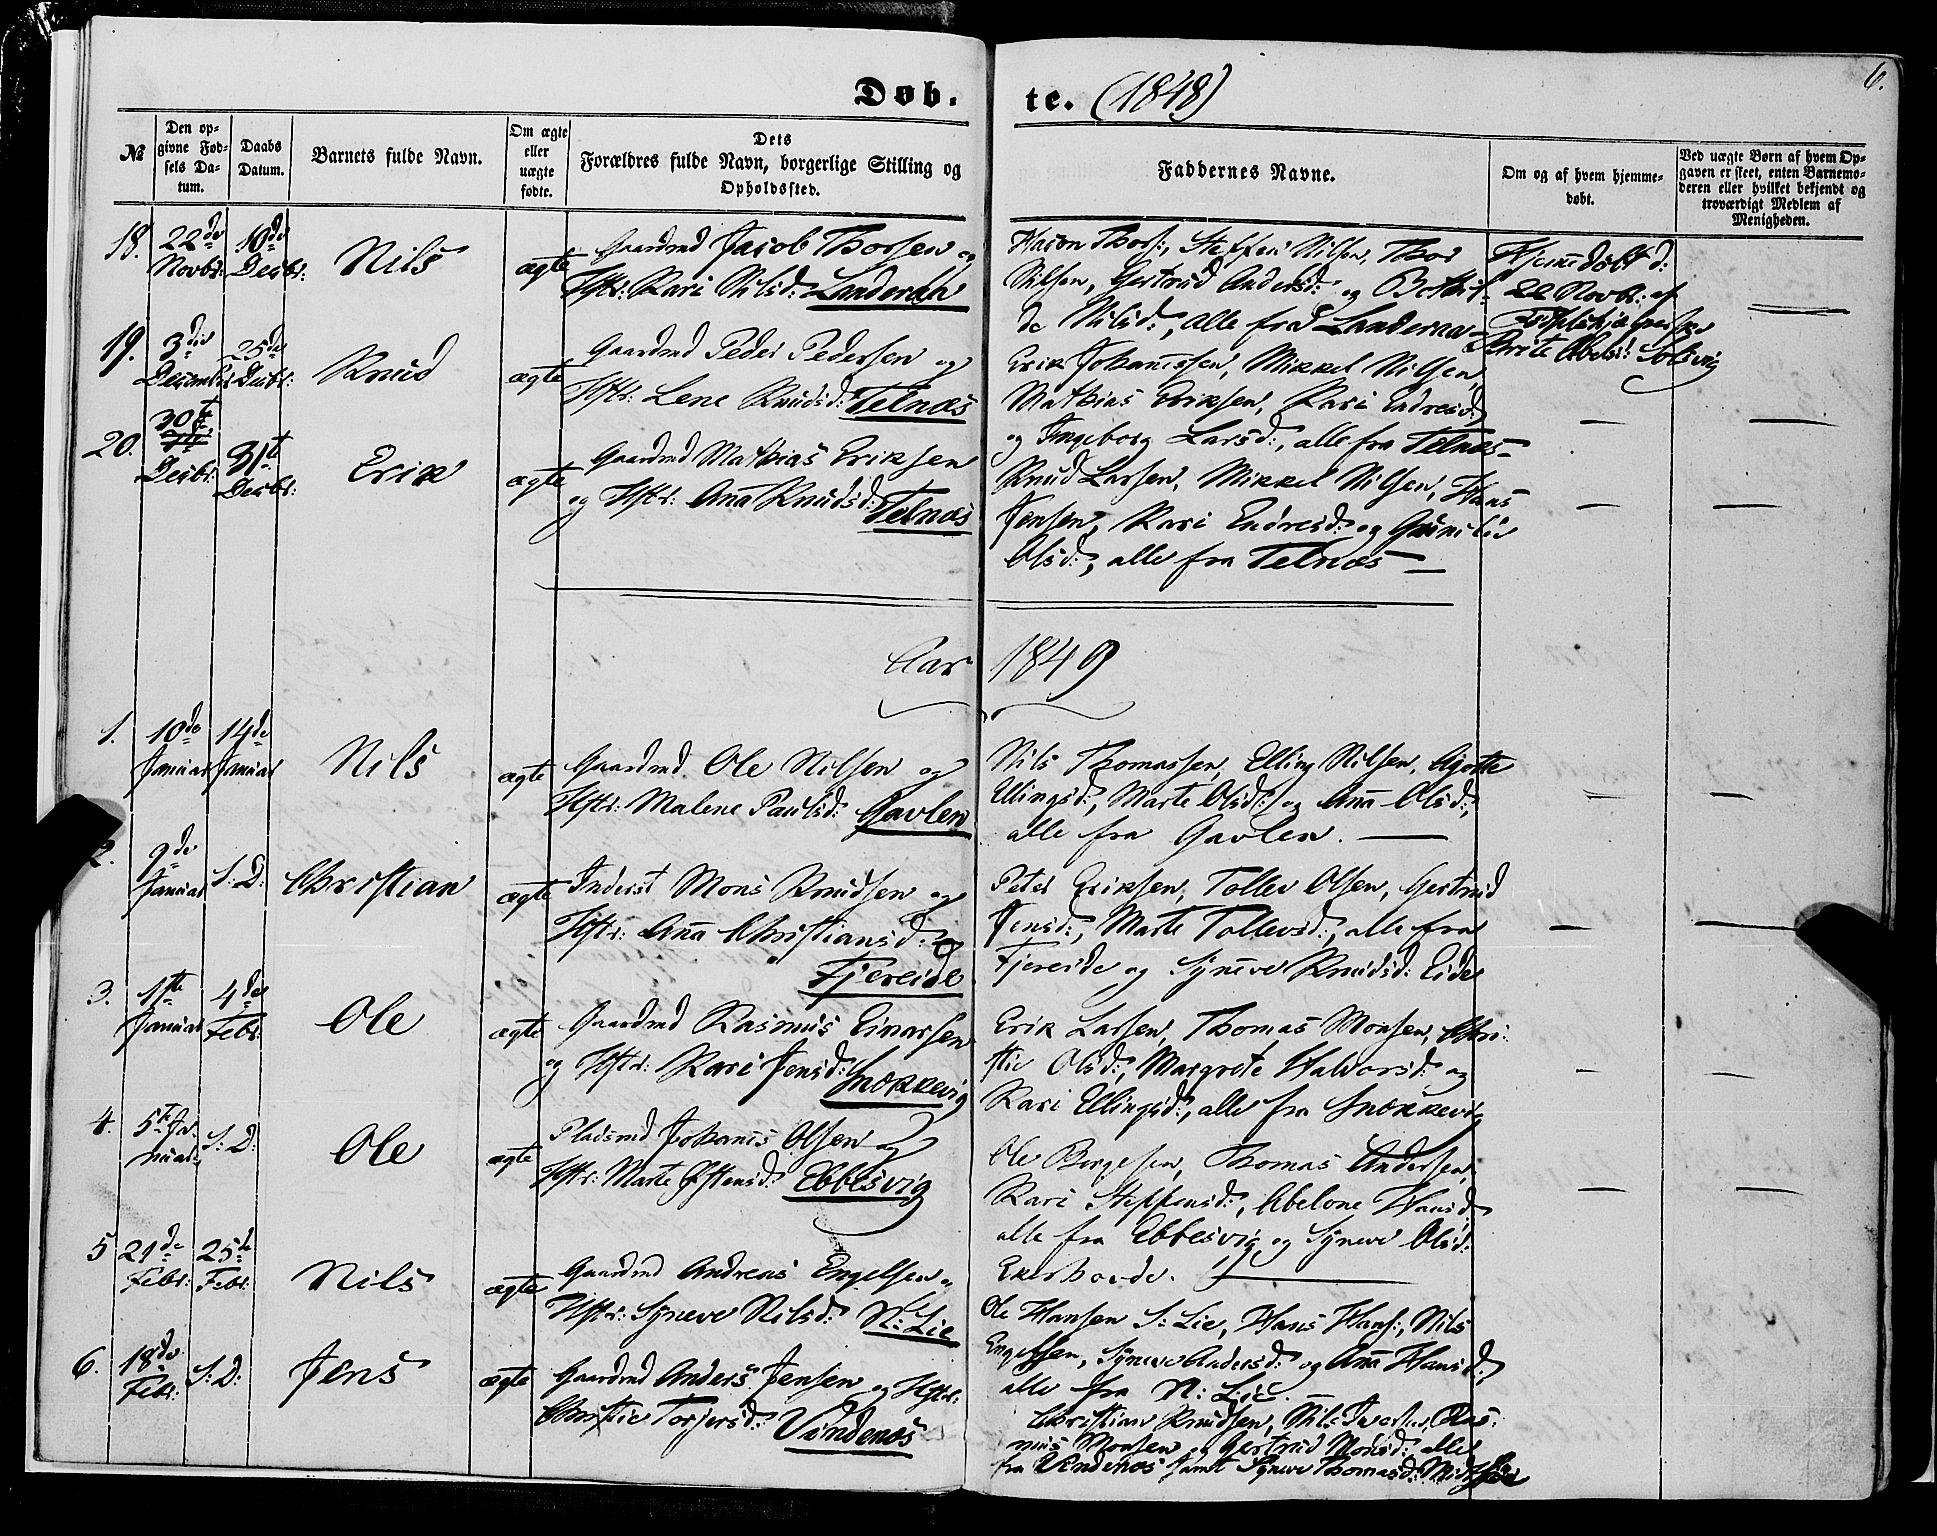 Døb-
te. (1848)
6.
№
Den op-
givne Fød-
sels Da-
tum.
Daabs
Datum.
Barnets fulde Navn.
Om ægte
eller
uægte
fødte.
Dets
Forældres fulde Navn, borgerlige Stilling og
Opholdssted.
Faddernes Navne.
Om og af hvem hjemme-
døbt.
Ved uægte Børn af hvem Op-
gaven er skeet, enten Barnemo-
deren eller hvilket bekjendt og
troværdigt Medlem af
Menigheden.
18.
22de
Novbr:
10de
Decbr:
Nils
ægte
Gaardmd Jacob Thorsen og
Hstr: Kari Nilsd: Landeraae
Haave Thors:, Steffen Nilsen, Thor
Nilsen, Gertrud Andersd: og Bothil-
de Nilsd:, alle fra Landeraae
Hjemedøbt d:
22 Novbr: af
Brite Abelsd: Solsvig
19.
3die
December
25de
Decbr:
Knud
ægte
Gaardmd Peder Pedersen og
Hstr: Lene Knudsd: Telnæs
Erik Johannssen, Mikkel Nilsen,
Mathias Eriksen, Kari Endresd:
og Ingeborg Larsd:, alle fra Telnæs
20.
30te
Decbr:
31te
Decbr:
Erik
ægte
Gaardmd Mathias Eriksen
og Hstr: Ana Knudsd: Telnæs
Knud Larsen, Mikkel Nilsen, Hans
Jensen, Kari Endresd: og Gunilde
Olsd:, alle fra Telnæs
Aar 1849
1.
10de
Januar
14de
Januar
Nils
ægte
Gaardmd. Ole Nilsen og
Hstr: Malene Paulsd: Gavlen
Nils Thomassen, Elling Nilsen, Agotte
Ellingsd:, Marte Olsd: og Ana Olsd:,
alle fra Gavlen.
2.
9de
Januar
S: D:
Christian
ægte
Inderst Mons Knudsen og
Hstr: Ana Christiansd:
Fjereide
Peter Eriksen, Tollev Olsen, Gertrud
Jensd:, Marte Tollevsd:, alle fra
Fjereide og Syneve Knudsd: Eide
3.
1ste
Januar
4de
Febr:
Ole
ægte
Gaardmd Rasmus Einarsen
og Hstr: Kari Jensd: Snøkkevig
Erik Larsen, Thomas Monsen, Chri-
stie Olsd:, Margrete Haldorsd: og
Kari Ellingsd:, alle fra Snøkkevig
4.
5te Ja-
nuar:
S: D:
Ole
ægte
Pladsmd Johans Olsen og
Hstr: Marte Østensd: Ebbesvig
Ole Børgesen, Thomas Andersen,
Kari Steffensd:, Abelone Hansd:
alle fra Ebbesvig og Syneve Olsd:
Ekerhovde.
5
21de
Febr:
25de
Febr:
Nils
ægte
Gaardmd Andreas Engelsen og
Hstr: Syneve Nilsd: N: Lie
Ole Hansen S: Lie, Hans Hans:, Nils
Engelsen, Syneve Andersd: og Ana Hansd:,
alle fra N: Lie.
6.
18de
Febr:
S: D:
Jens
ægte
Gaardmd Anders Jensen og Hstr:
Christie Torjersd: Vindenæs
Christian Knudsen, Nils Iversen, Ras-
mus Monsen og Gertrud Monsd: alle
fra Vindenæs samt Syneve Thomasd: